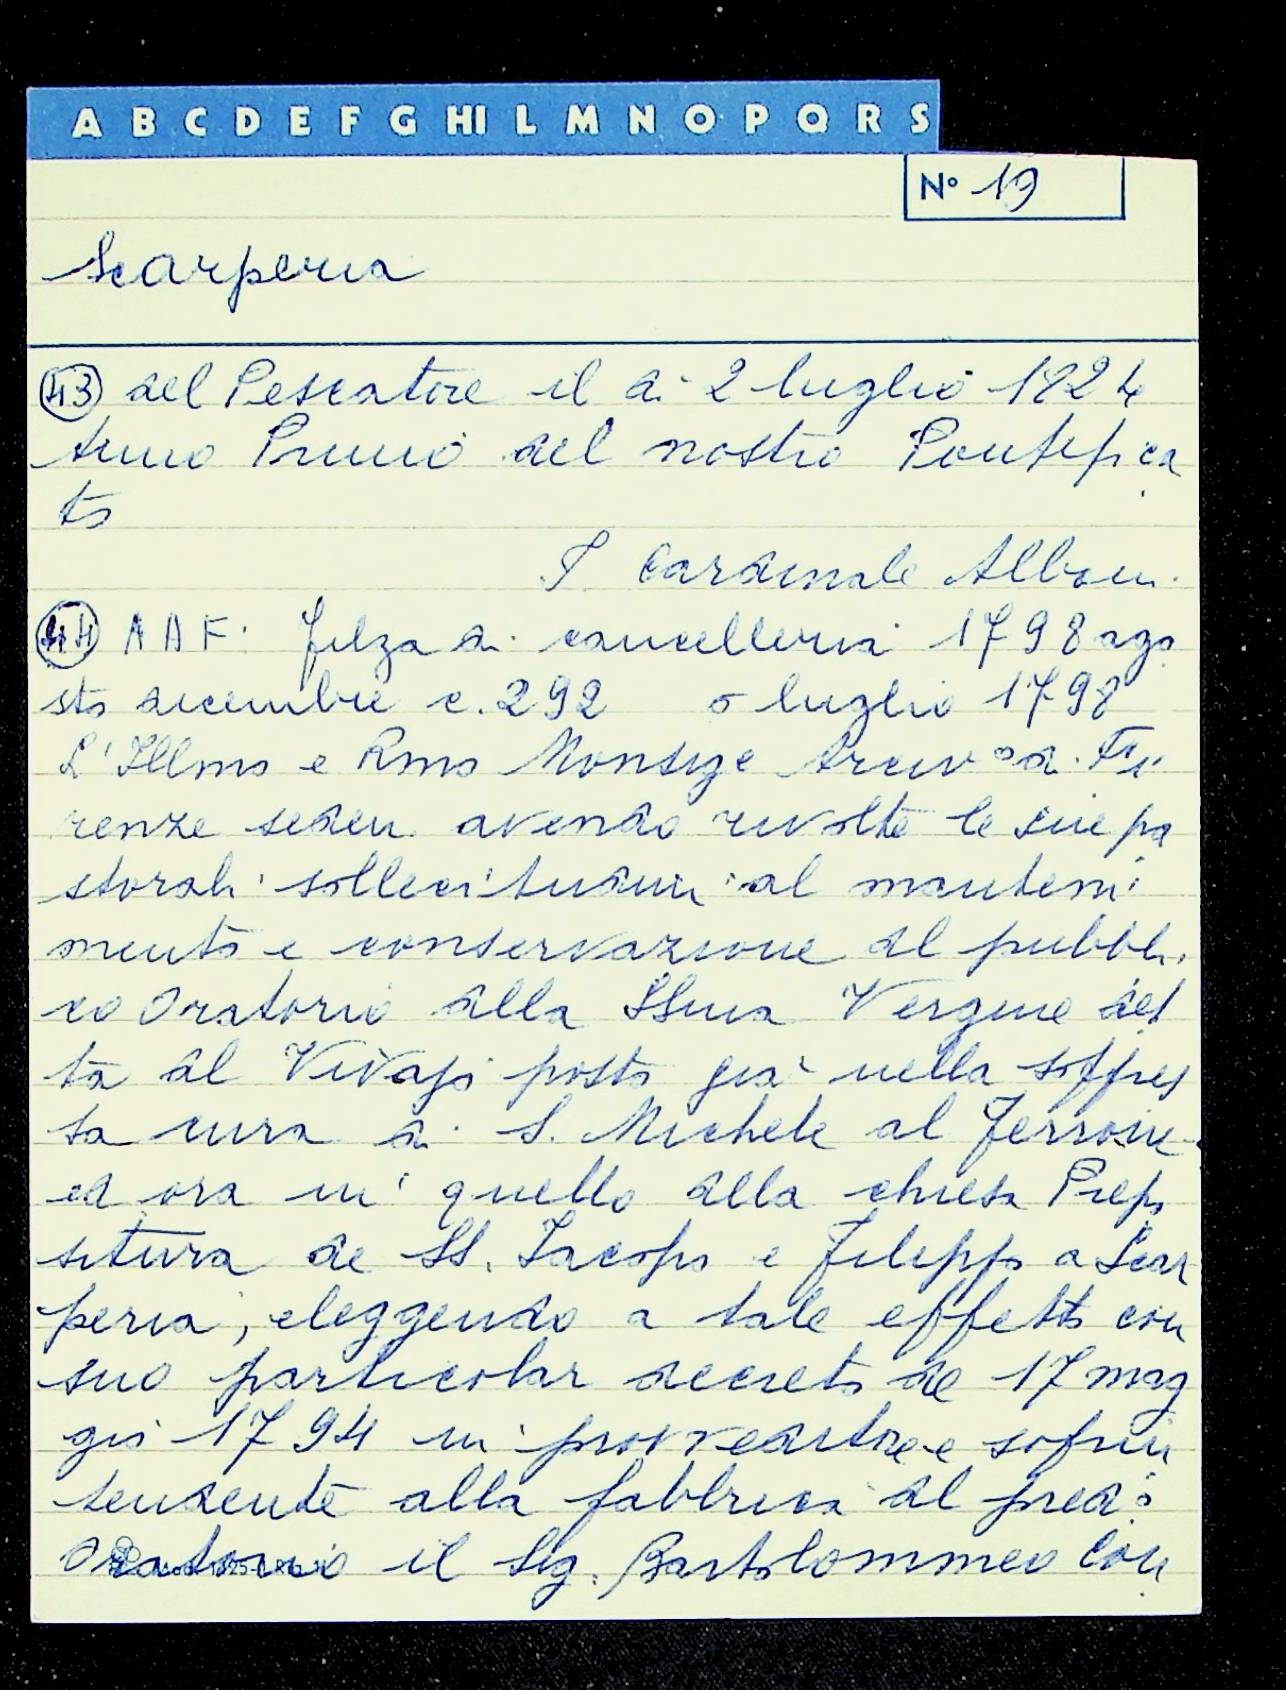 A B C D E F G HI L M N O P Q R S
N° 19
Scarperia
43 del Pescatore il dì 2 luglio 1824
Anno Primo del nostro Pontifica
to
Cardinale Albani
44 A A F: filza di cancelleria 1798 ago
sto dicembre c. 292 5 luglio 1798
L'Illmo e Rmo Monsige Arciv° di Fi
renze seden. avendo rivolte le sue pa
storali sollecitudini al manteni
mento e conservazione del pubbli
co Oratorio della SSma Vergine det
ta del Vivajo posto già nella soppres
sa cura di S. Michele al Ferrone
ed ora in quello della chiesa Prepo
situra de SS. Jacopo e Filippo a Scar
peria, eleggendo a tale effetto con
suo particolar decreto de 17 mag
gio 1794 in provveditore e soprin
tendente alla fabbrica del pred°
Oratorio il Sig. Bartolommeo Con